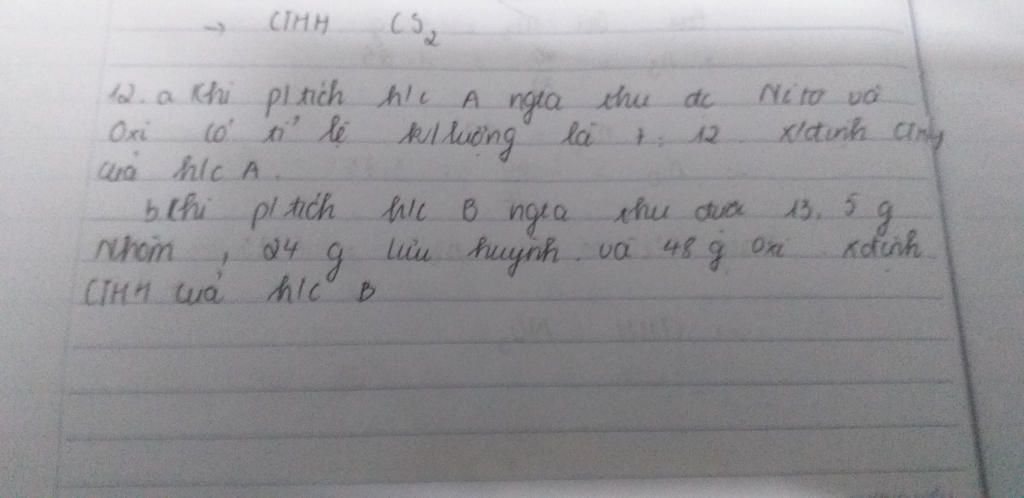 → CTHH CS2
12. a Khi p/ tích h/c A ngta thu dc Nito và
Oxi có tỉ lệ k/lượng là 7: 12 x/định CTHH
của h/c A.
b Khi p/ tích h/c B ngta thu được 13, 5 g
Nhôm, 24 g lưu huỳnh và 48 g oxi xđịnh
CTHH của h/c B